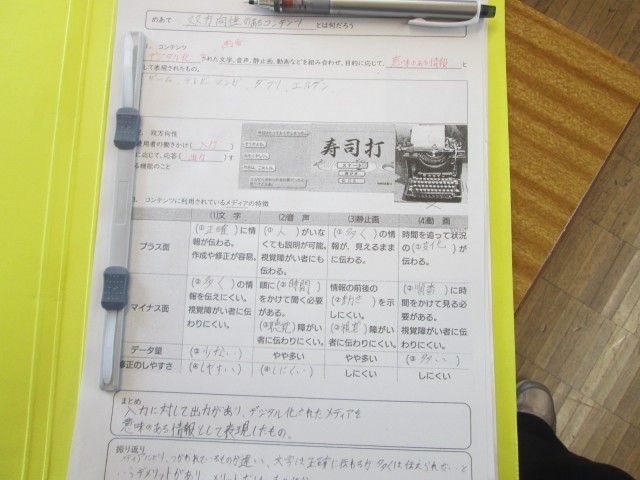 めあて 双方向性のあるコンテンツ とは何だろう
コンテンツ
デジタル化 された文字、音声、静止画、動画などを組み合わせ、目的に応じて、 意味のある情報 と
して表現されたもの。
双方向性
使用者の働きかけ( 入力 )
に応じて、応答( 出力 )す
る機能のこと
寿司打
コンテンツに利用されているメディアの特徴
(1)文字 (2)音声 (3)静止画 (4)動画
プラス面
(①正確)に情報が伝わる。
作成や修正が容易。
(①人)がいなくても説明が可能。
視覚障がい者にも伝わる。
(①多く)の情報が、見えるままに伝わる。
時間を追って状況の(①変化)が伝わる。
マイナス面
(②多く)の情報を伝えにくい。
視覚障がい者に伝わりにくい。
順に(②時間)をかけて聞く必要がある。
(③聴覚)障がい者に伝わりにくい。
情報の前後の(②動き)を示しにくい。
(③視覚)障がい者に伝わりにくい。
(②順番)に時間をかけて見る必要がある。
データ量 (③少ない) やや多い やや多い (③多い)
修正のしやすさ (④やすい) (④しにくい) しにくい しにくい
まとめ
入力に対して出力があり、デジタル化されたメディアを
意味のある情報として表現したもの。
振り返り